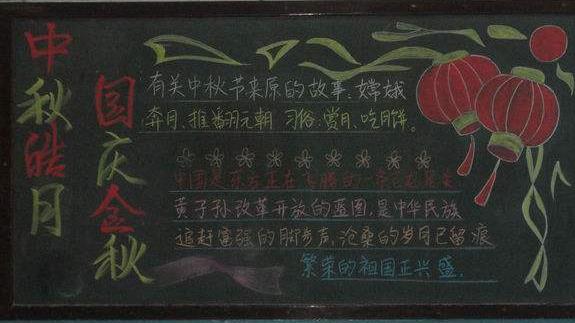 中秋皓月
国庆金秋
有关中秋节来原的故事:嫦娥
奔月、推翻元朝 习俗:赏月、吃月饼。
中国是东方正在飞腾的一条巨龙是炎
黄子孙改革开放的蓝图,是中华民族
追赶富强的脚步声,沧桑的岁月已留痕
繁荣的祖国正兴盛.